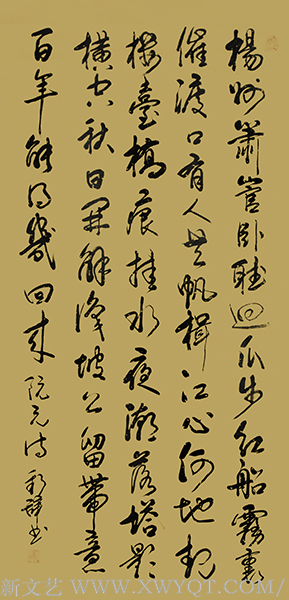 楊州蕭管卧聽迴瓜步紅船霧裏
催渡口有人具帆楫江心何地起
樓臺檣痕挂水夜潮落塔影
橫空秋日開解坡公留帶意
百年能得幾回来 阮元诗 书
新文艺 / WWW.XWYQT.COM/